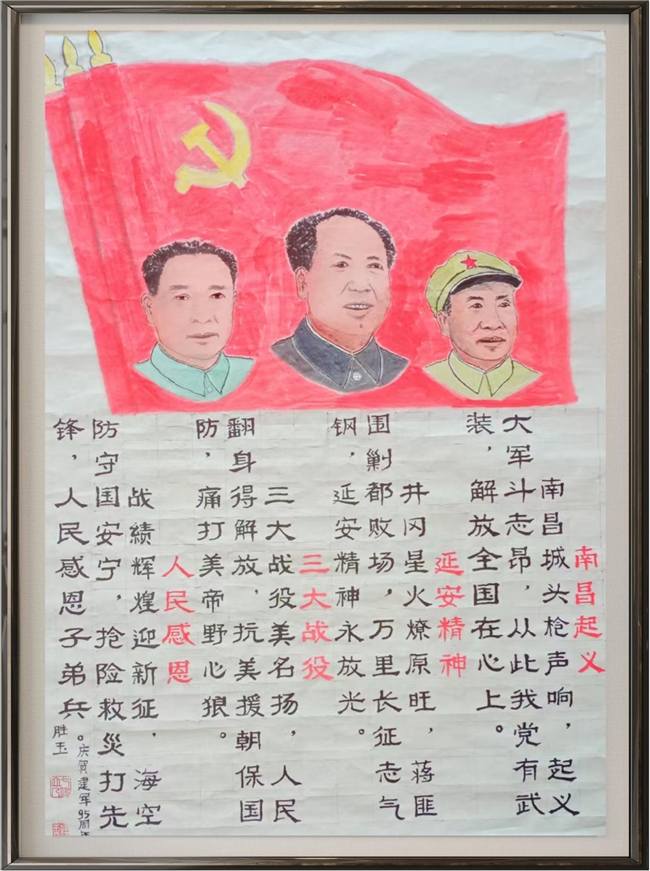 南昌起义
南昌城头枪声响，起义
大军斗志昂，从此我党有武
装，解放全国在心上。
延安精神
井冈星火燎原旺，蒋匪
围剿都败场，万里长征志气
钢，延安精神永放光。
三大战役
三大战役美名扬，人民
翻身得解放，抗美援朝保国
防，痛打美帝野心狼。
人民感恩
战績辉煌迎新征，海空
防守国安宁，抢险救災打先
锋，人民感恩子弟兵。
庆贺建军95周年
胜玉